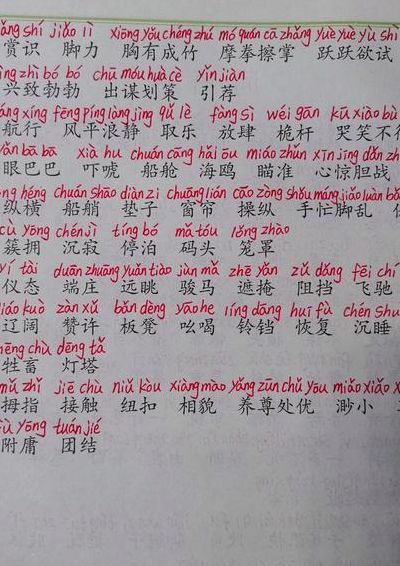 shí jiǎo lì xiōng yǒu chéng zhú mó quán cā zhǎng yuè yuè yù shì
赏识 脚力 胸有成竹 摩拳擦掌 跃跃欲试
zhì bó bó chū móu huà cè yǐn jiàn
兴致勃勃 出谋划策 引荐
xíng fēng píng làng jìng qǔ lè fàng sì wéi gān kū xiào bù
航行 风平浪静 取乐 放肆 桅杆 哭笑不
yǎn bā bā xià hu chuán cāng hǎi ōu miáo zhǔn xīn jīng dǎn zhàn
眼巴巴 吓唬 船舱 海鸥 瞄准 心惊胆战
héng chuán shāo diàn zi chuāng lián cāo zòng shǒu máng jiǎo luàn
纵横 船艄 垫子 窗帘 操纵 手忙脚乱
cù yōng chén jì tíng bó mǎ tóu lǒng zhào
簇拥 沉寂 停泊 码头 笼罩
yí tài duān zhuāng yuǎn tiào jùn mǎ zhē yǎn zǔ dǎng fēi chí
仪态 端庄 远眺 骏马 遮掩 阻挡 飞驰
liáo kuò zàn xǔ bǎn dèng yāo he líng dāng huī fù chén shuì
辽阔 赞许 板凳 吆喝 铃铛 恢复 沉睡
chù dēng tǎ
牲畜 灯塔
mǔ zhǐ jiē chù niǔ kòu xiàng mào yǎng zūn chǔ yōu miǎo xiǎo
拇指 接触 纽扣 相貌 养尊处优 渺小
fù yōng tuán jié
附庸 团结